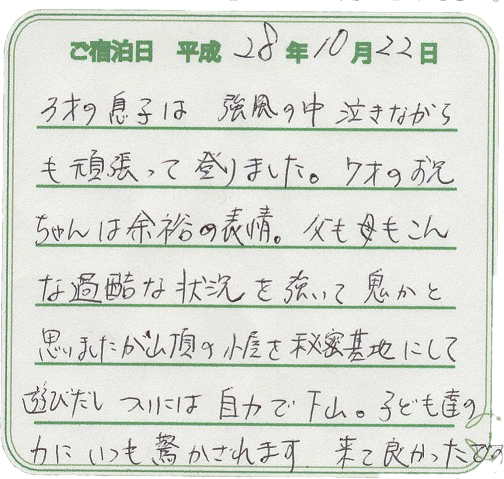 ご宿泊日 平成28年10月22日
3才の息子は 強風の中 泣きながら
も頑張って登りました。7才のお兄
ちゃんは余裕の表情。父も母もこん
な過酷な状況を強いて鬼かと
思いましたが山頂の小屋を秘密基地にして
遊びだし ついには 自力で下山。子ども達の
力にいつも驚かされます。来て良かったです